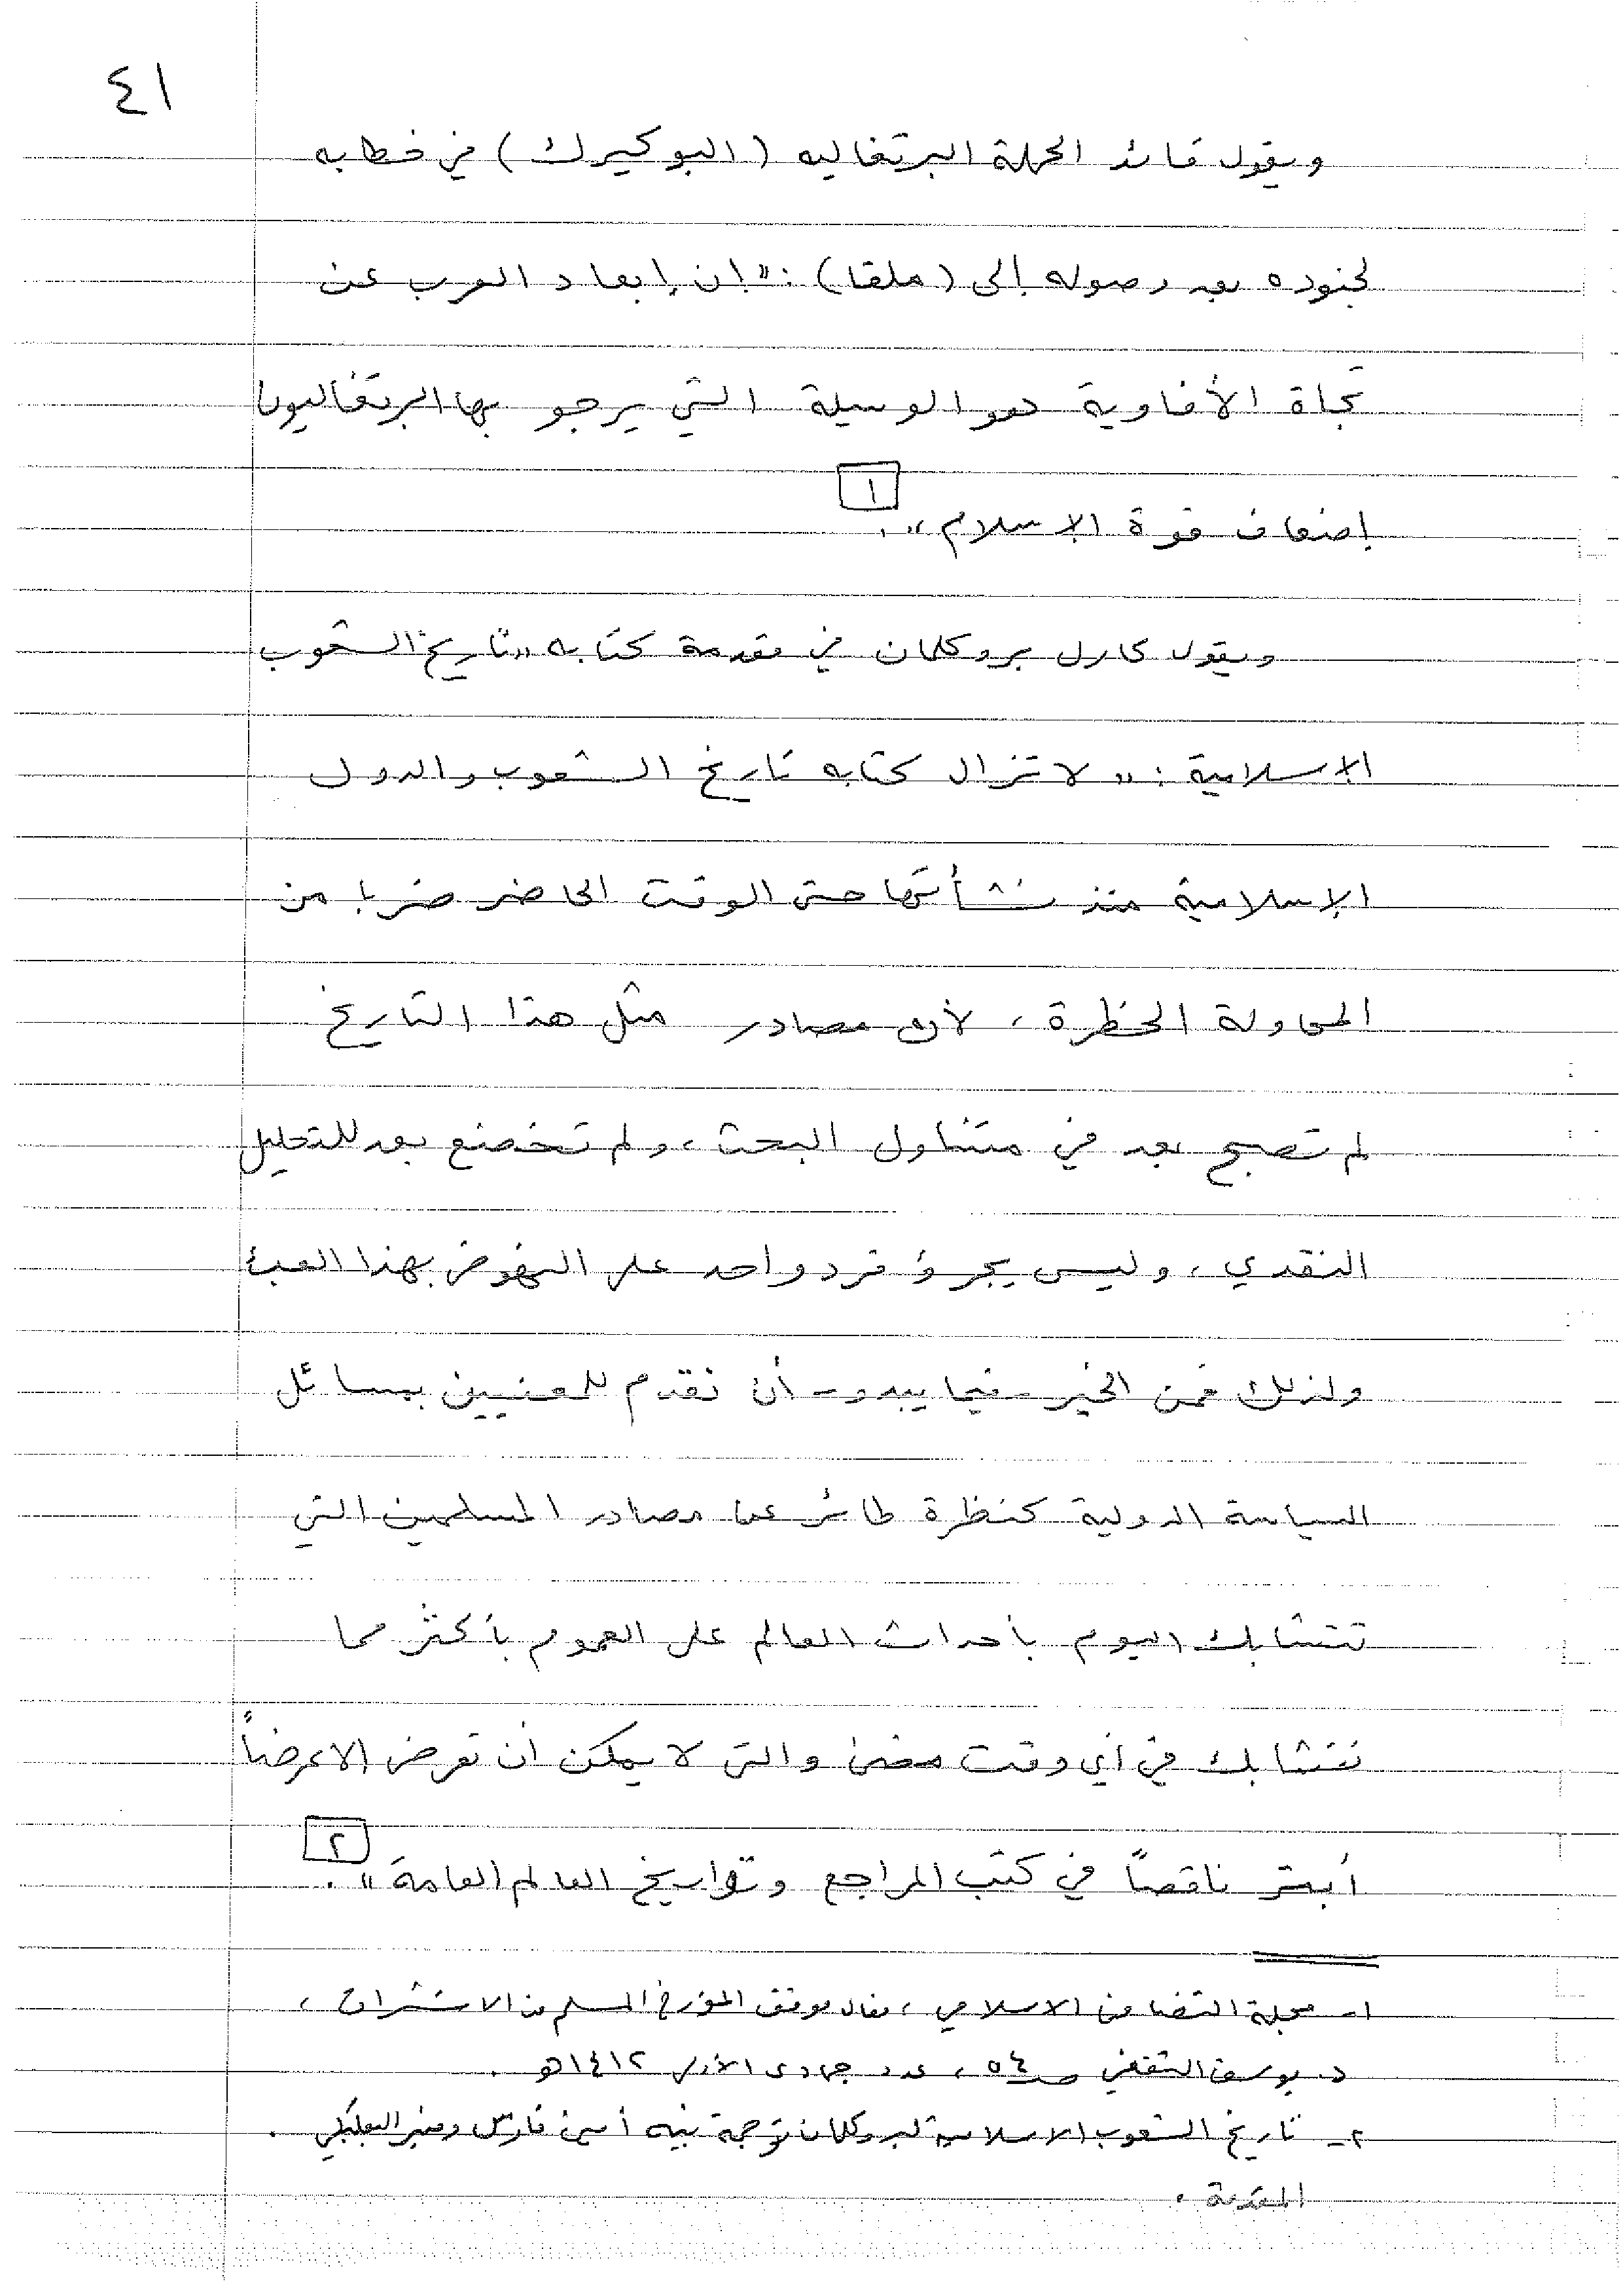 ٤١
ويقول قائد الحملة البرتغاليه (البوكيرك) في خطابه
لجنوده بعد وصوله إلى (ملقا): "إن إبعاد العرب عن
تجاة الأفاوية هو الوسيلة التي يرجو بها البرتغاليون
إضعاف قوة الإسلام".
١
ويقول كارل بروكلمان في مقدمة كتابه "تاريخ الشعوب
الإسلامية: "لا تزال كتابه تاريخ الشعوب والدول
الإسلامية منذ نشأتها حتى الوقت الحاضر ضربا من
المحاولة الخطرة، لأن مصادر مثل هذا التاريخ
لم تصبح بعد في متناول البحث، ولم تخضع بعد للتحليل
النقدي، وليس يجرؤ فرد واحد على النهوض بهذا العبء
ولذلك فمن الخير - فيما يبدو - أن نقدم للمعنيين بمسائل
السياسة الدولية كنظرة طائر عما مصادر المسلمين التي
تتشابك اليوم بأحداث العالم على العموم بأكثر مما
تتشابك في أي وقت مضى والتي لا يمكن أن تعرض الا عرضاً
أبتر ناقصاً في كتب المراجع وتواريخ العالم العامة".
٢
١- مجلة التضامن الاسلامي، مقال موقف المؤرخ المسلم من الاستشراق،
د. يوسف الثقفي ص٥٤، عدد جمادى الأولى ١٤١٢هـ.
٢- تاريخ الشعوب الاسلامية لبروكلمان ترجمة نبيه أمين فارس ومنير البعلبكي.
المقدمة.